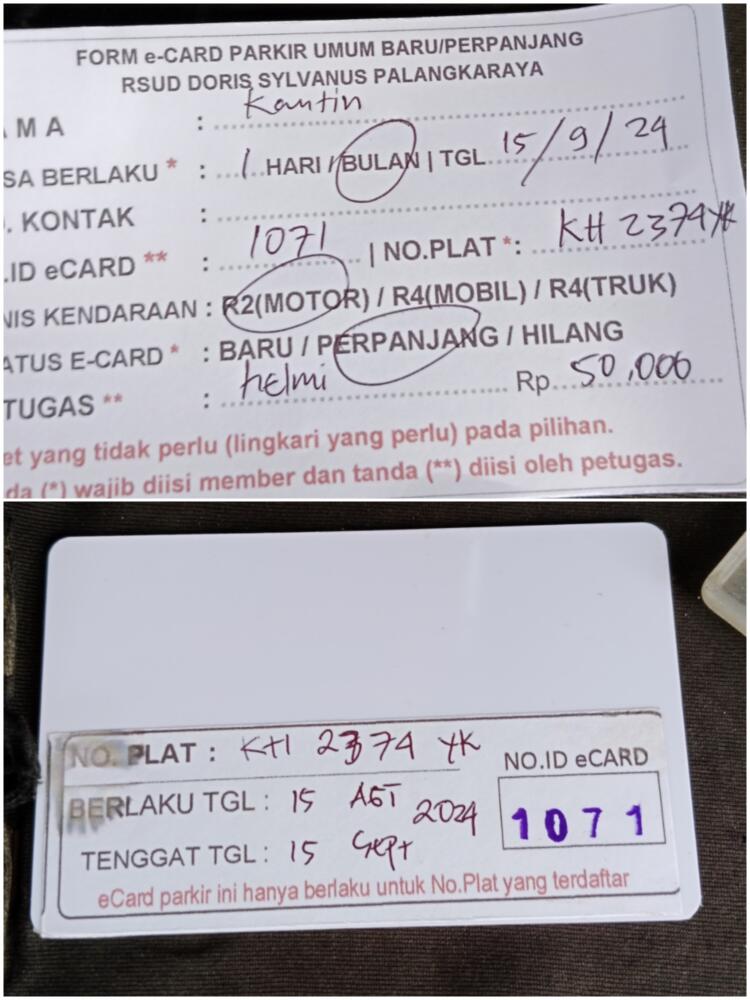 FORM e-CARD PARKIR UMUM BARU/PERPANJANG
RSUD DORIS SYLVANUS PALANGKARAYA
AMA : Kantin
SA BERLAKU * : 1 HARI / BULAN | TGL 15/9/24
. KONTAK :
.ID eCARD ** : 1071 | NO.PLAT *: KH 2374 YK
NIS KENDARAAN : R2(MOTOR) / R4(MOBIL) / R4(TRUK)
ATUS E-CARD * : BARU / PERPANJANG / HILANG
TUGAS ** : helmi Rp. 50,000
et yang tidak perlu (lingkari yang perlu) pada pilihan.
da (*) wajib diisi member dan tanda (**) diisi oleh petugas.
NO. PLAT : KH 2374 YK
NO.ID eCARD
BERLAKU TGL : 15 AGT 2024
1071
TENGGAT TGL : 15 Sept
eCard parkir ini hanya berlaku untuk No.Plat yang terdaftar